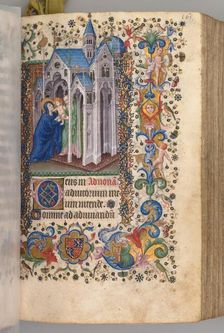 Deus in Ad nonā
adiutorium me
um intende.
Domine ad adiuuandū